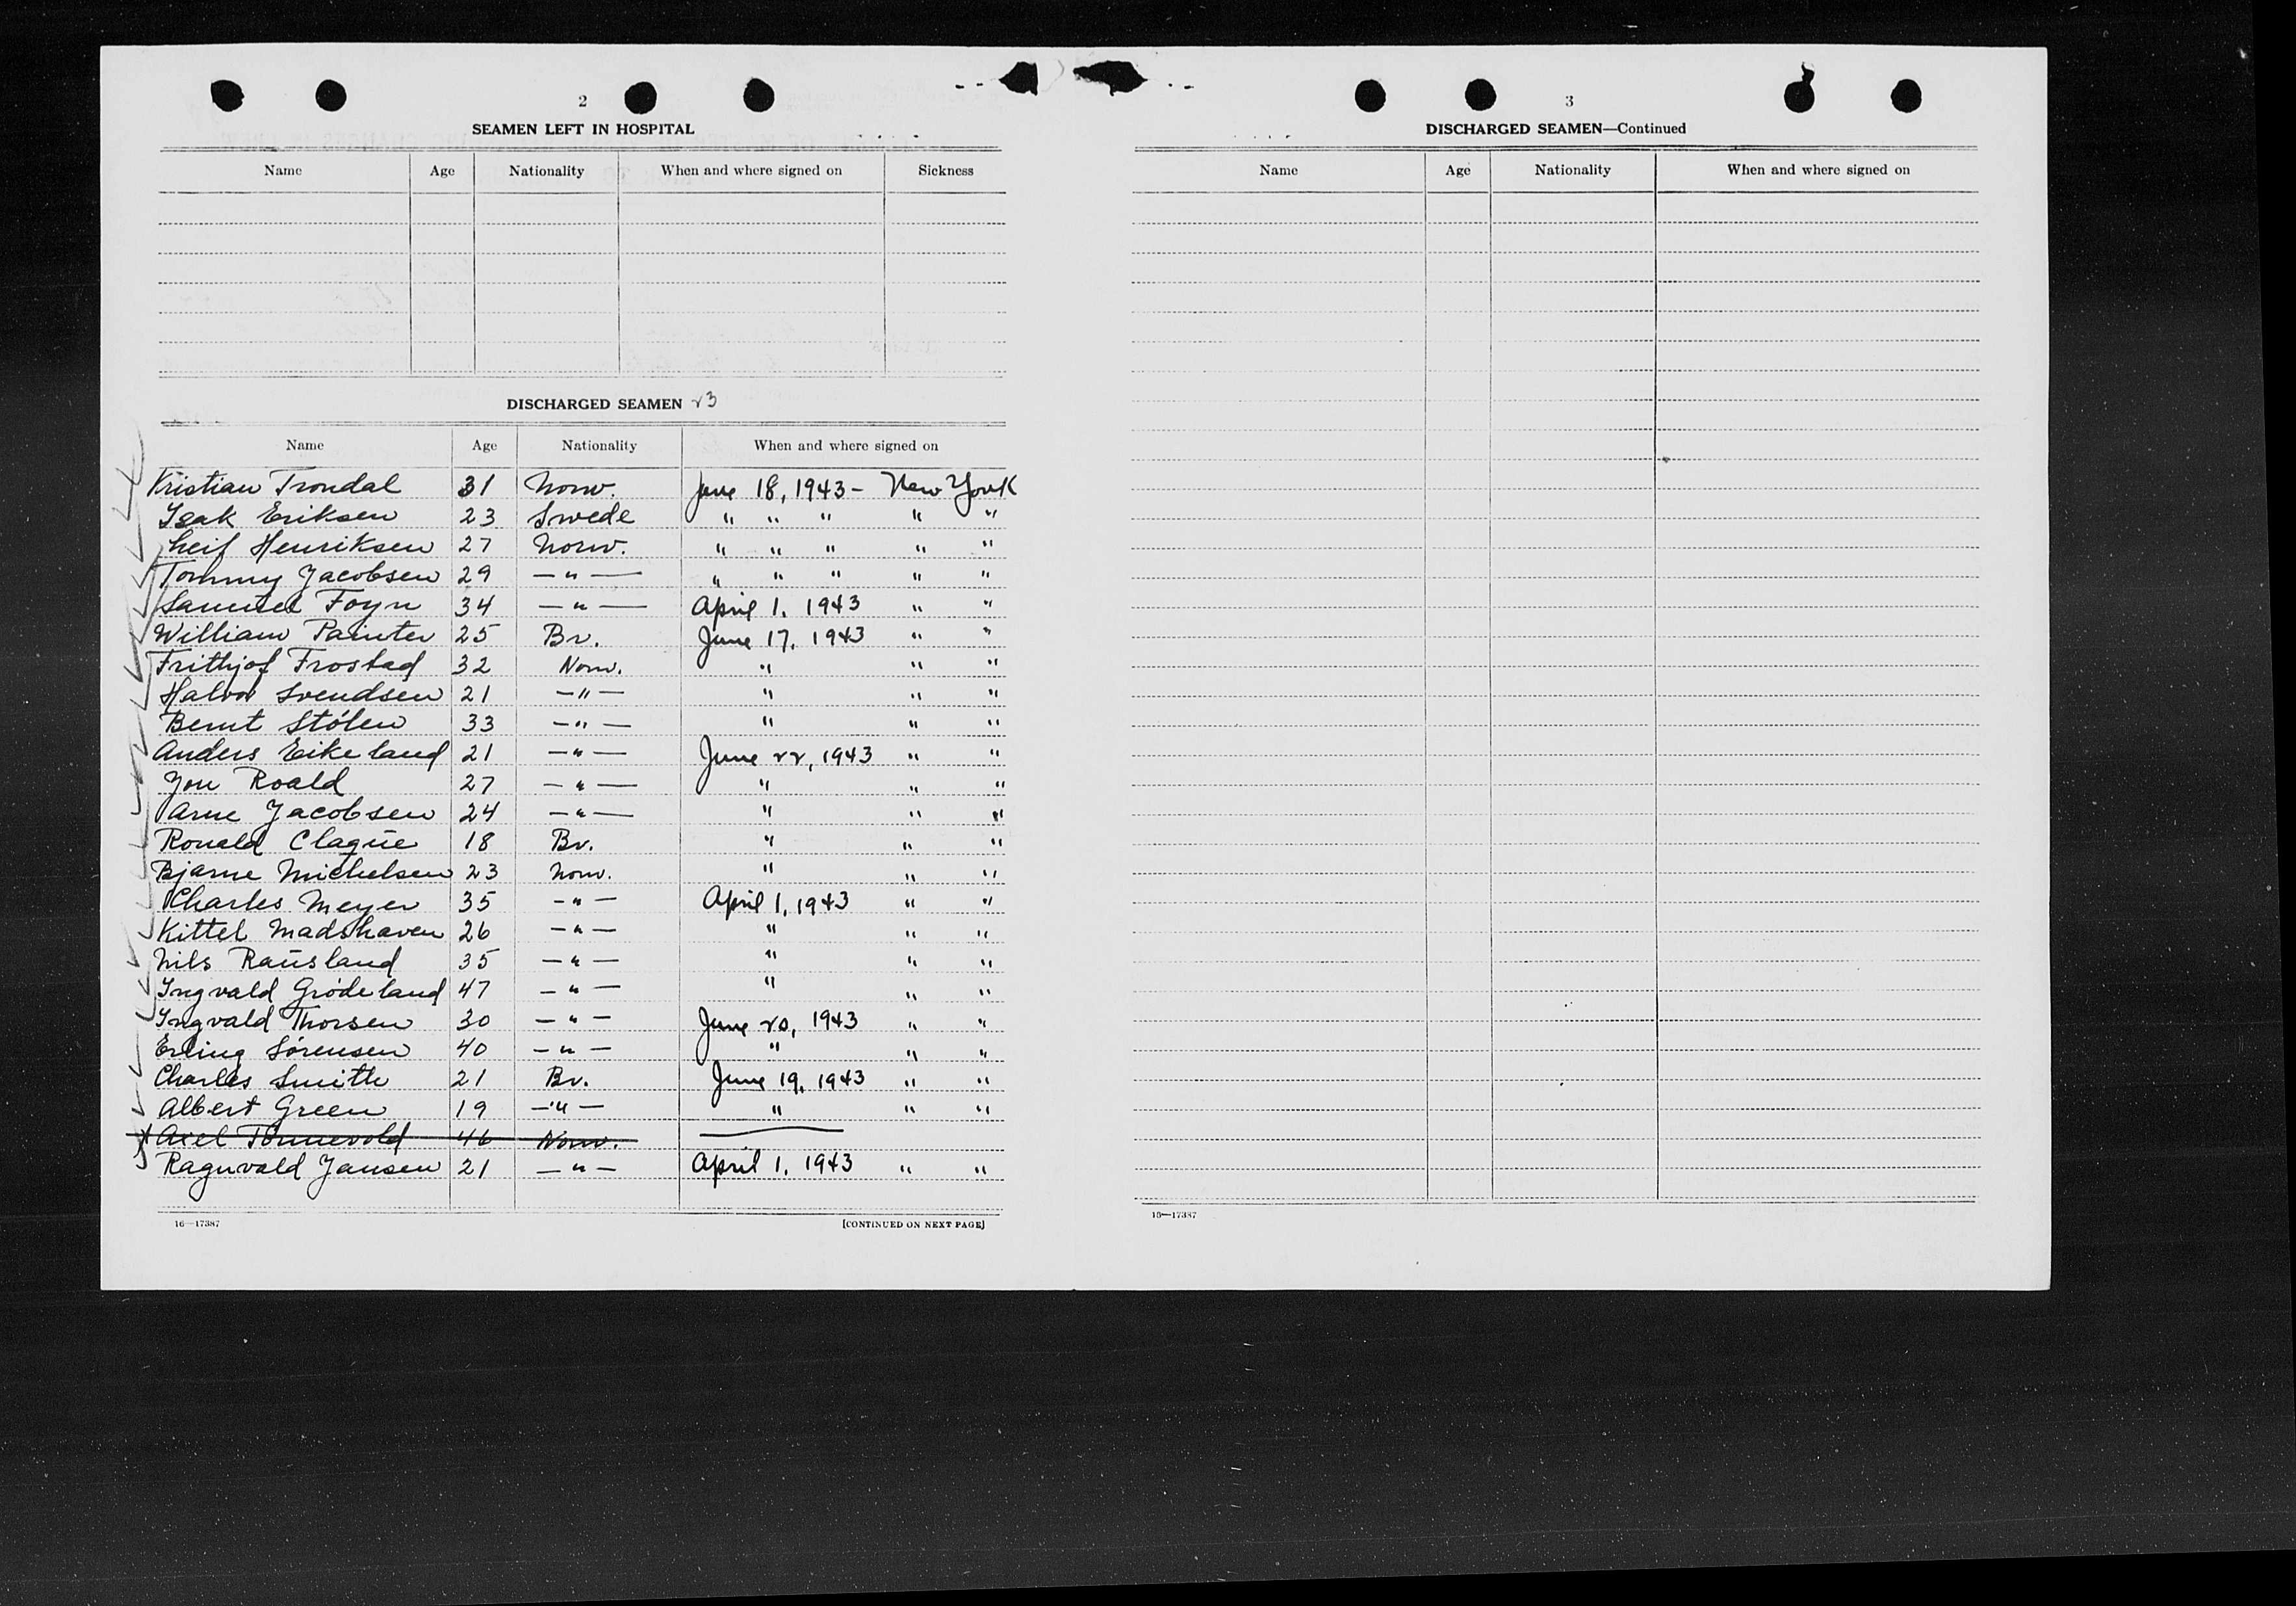 2
SEAMEN LEFT IN HOSPITAL
Name Age Nationality When and where signed on Sickness
DISCHARGED SEAMEN 23
Name Age Nationality When and where signed on
Kristian Trondal 31 Norw. June 18, 1943 - New York
Isak Eriksen 23 Swede " " " " "
Leif Henriksen 27 Norw. " " " " "
Tommy Jacobsen 29 — " — " " " " "
Samuel Foyn 34 — " — April 1. 1943 " "
William Painter 25 Br. June 17. 1943 " "
Frithjof Frostad 32 Norw. " " "
Halvor Svendsen 21 — " — " " "
Bernt Stólen 33 — " — " " "
Anders Eikeland 21 — " — June 22, 1943 " "
Jon Roald 27 — " — " " "
Arne Jacobsen 24 — " — " " "
Ronald Clague 18 Br. " " "
Bjarne Michelsen 23 Norw. " " "
Charles Meyer 35 - " — April 1, 1943 " "
Kittel Madshaven 26 — " — " " "
Nils Rausland 35 — " — " " "
Ingvald Gródeland 47 — " — " " "
Ingvald Thorsen 30 — " — June 20, 1943 " "
Erling Sórensen 40 — " — " " "
Charles Smith 21 Br. June 19, 1943 " "
Albert Green 19 — " — " " "
Axel Tónnevold 46 Norw. —
Ragnvald Jansen 21 — " — April 1. 1943 " "
16—17387 [CONTINUED ON NEXT PAGE]
3
DISCHARGED SEAMEN—Continued
Name Age Nationality When and where signed on
16—17387